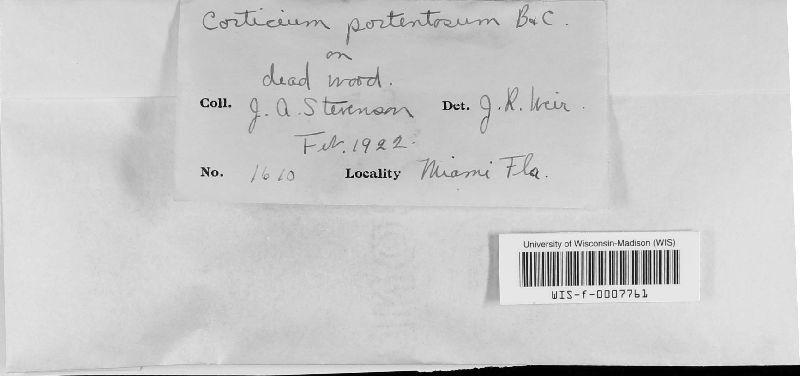 Corticium portentosum B&C.
on
dead wood.
Coll. J. A. Stevenson Det. J. R. Weir.
Feb. 1922.
No. 1610 Locality Miami Fla.
University of Wisconsin-Madison (WIS)
WIS-f-0007761